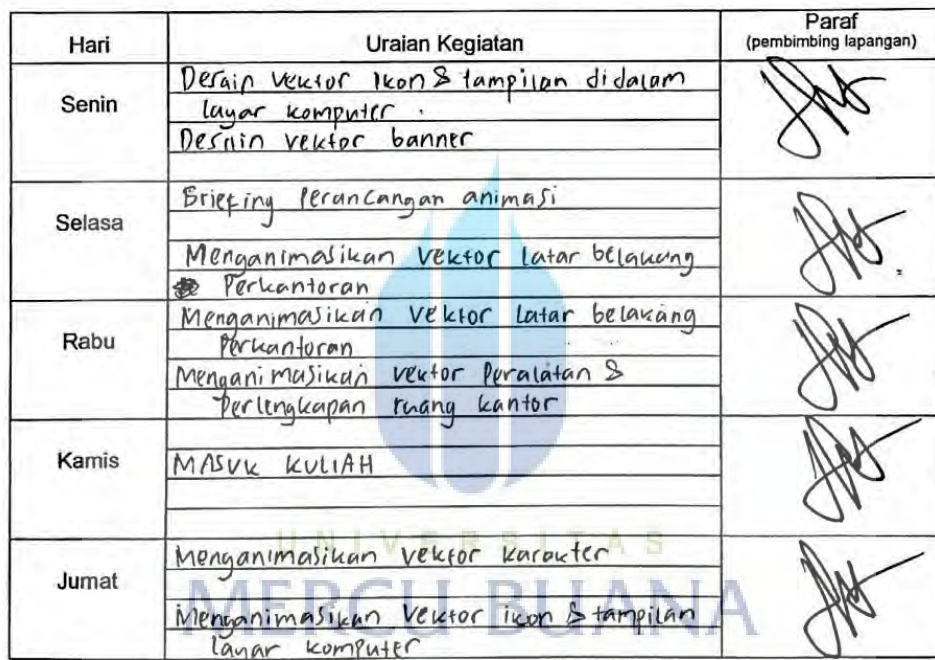 Hari
Uraian Kegiatan
Paraf
(pembimbing lapangan)
Senin
Desain vektor ikon & tampilan didalam
layar komputer
Desain vektor banner
Selasa
Briefing Perancangan animasi
Menganimasikan vektor latar belakang
Perkantoran
Rabu
Menganimasikan vektor latar belakang
Perkantoran
Menganimasikan vektor Peralatan &
Perlengkapan ruang kantor
Kamis
MASUK KULIAH
Jumat
Menganimasikan vektor karakter
Menganimasikan vektor ikon & tampilan
layar komputer
UNIVERSITAS
MERCU BUANA